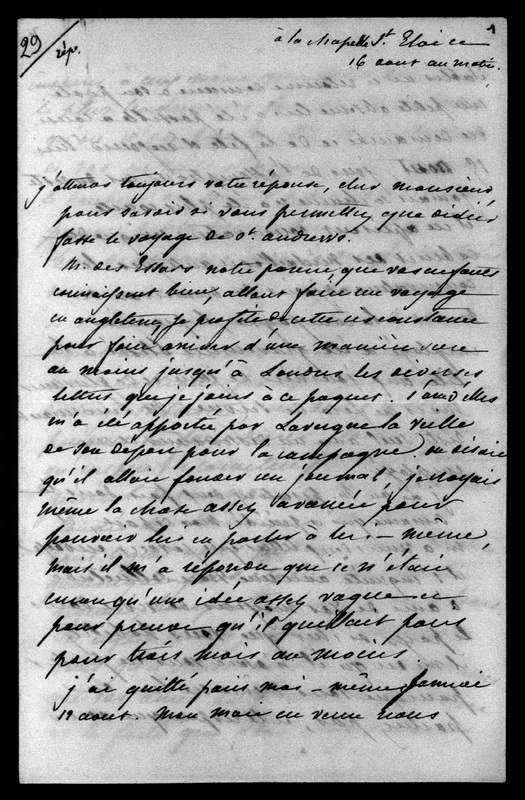 29
rép.
1
à la Chapelle St Eloi ce
16 aout au matin.
j'attens toujours votre réponse, cher monsieur
pour savoir si vous permettez que didier
fasse le voyage de St. andrews.
M. des Essars notre parent, que vos enfants
connaissent bien, allant faire un voyage
en angleterre, je profite de cette circonstance
pour faire arriver d'une manière sure
au moins jusqu'à Londres les diverses
lettres que je joins à ce paquet. l'une d'elles
m'a été apporté par Lavergne la veille
de son départ pour la campagne. on disait
qu'il allait fonder un journal, je croyais
même la chose assez avancée pour
pouvoir lui en parler à lui-même,
mais il m'a répondu que ce n'était
encor qu'une idée assez vague et
pour preuve qu'il quittait paris
pour trois mois au moins.
j'ai quitté paris moi-même
12 aout. Mon mari est venu nous